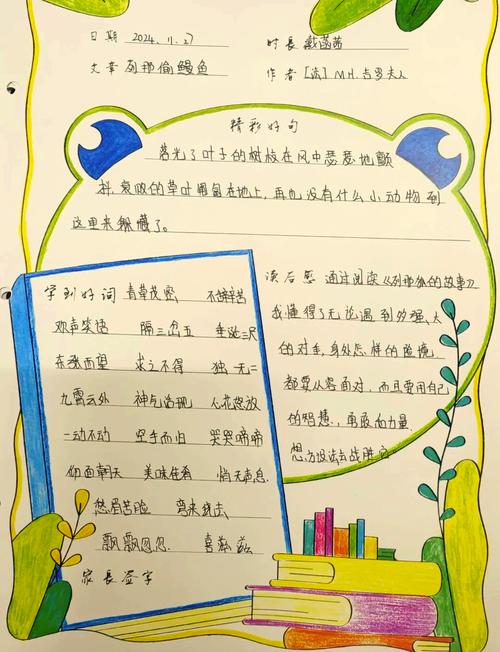 日期 2024.11.27 时长 戴菡茜
文章 列那偷鳗鱼 作者 [法] M.H.吉罗夫人
精彩好句
落光了叶子的树枝在风中瑟瑟地颤
抖,衰败的草叶匍匐在地上,再也没有什么小动物到
这里来躲藏了。
学到好词 青草茂密 不辞辛苦
欢声笑语 隔三岔五 垂涎三尺
东张西望 求之不得 独一无二
九霄云外 神气活现 心花怒放
一动不动 空手而归 哭哭啼啼
仰面朝天 美味佳肴 悄无声息
愁眉苦脸 弯来绕去
飘飘忽忽 喜滋滋
家长签字
读后感 通过阅读《列那狐的故事》
我懂得了无论遇到多强大
的对手,身处怎样的险境
都要从容面对,而且要用自己
的智慧、勇敢和力量
想方设法去战胜它。